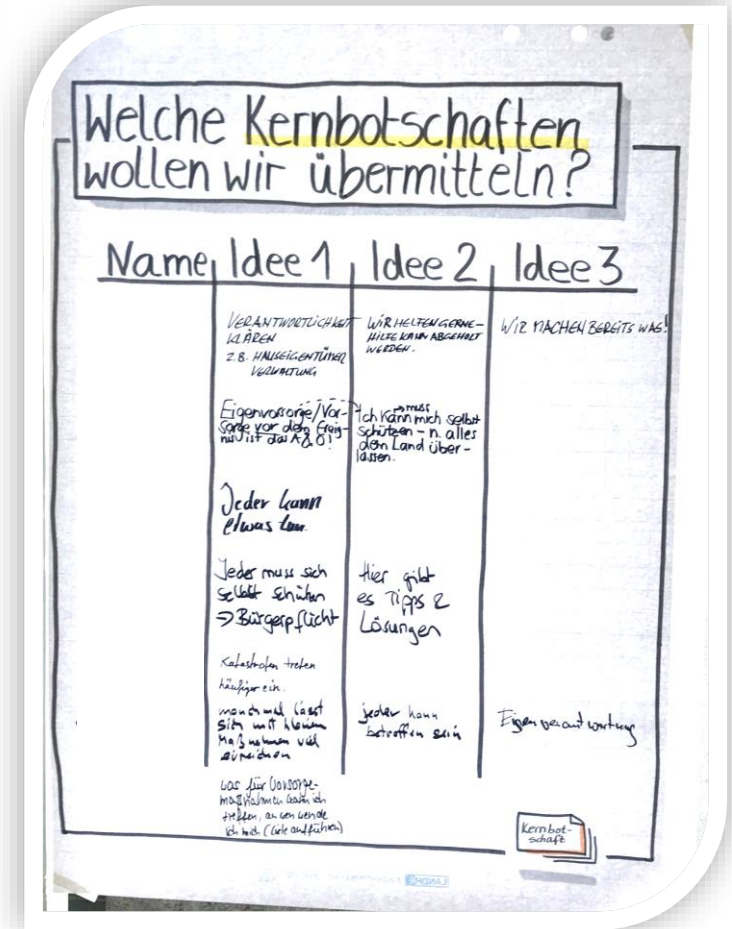 Welche Kernbotschaften
wollen wir übermitteln?
Name Idee 1 Idee 2 Idee 3
VERANTWORTLICHKEIT
KLÄREN
Z.B. HAUSEIGENTÜMER
VERWALTUNG
WIR HELFEN GERNE-
HILFE KANN ABGEHOLT
WERDEN.
WIR MACHEN BEREITS WAS!
Eigenvorsorge/Vor-
sorge vor dem Ereig-
nis ist das A&O!
muss
Ich kann mich selbst
schützen - n. alles
dem Land über-
lassen.
Jeder kann
etwas tun.
Jeder muss sich
selbst schützen
⇒ Bürgerpflicht
Hier gibt
es Tipps &
Lösungen
Katastrofen treten
häufiger ein.
manchmal lässt
sich mit kleinen
Maßnahmen viel
erreichen
jeder kann
betroffen sein
Eigenverantwortung
was für Vorsorge-
maßnahmen kann ich
treffen, an wen wende
ich mich (Liste aufführen)
Kernbot-
schaft